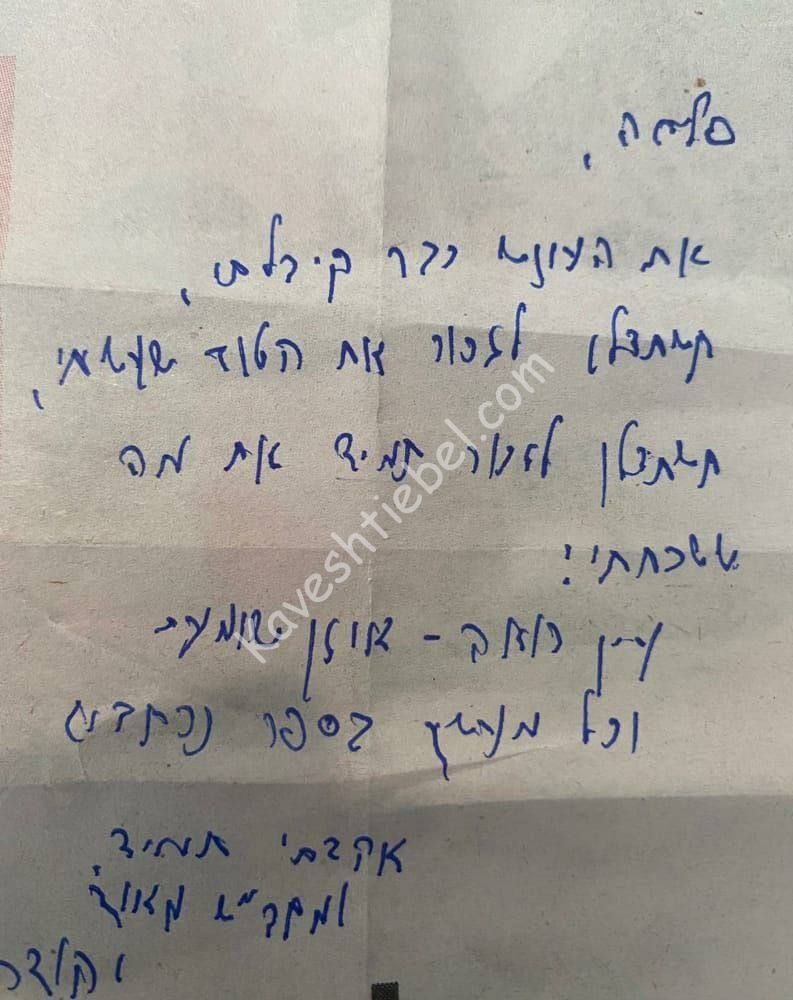 סליחה,
את העונש כבר קיבלתי,
תשתדלן לזכור את הטוב שעשיתי,
תשתדלן לזכור תמיד את מה
ששכחתי!
עין רואה - אוזן שומעת
וכל מעשיך בספר נכתבים
אהבתי תמיד.
kaveshtiebel.com